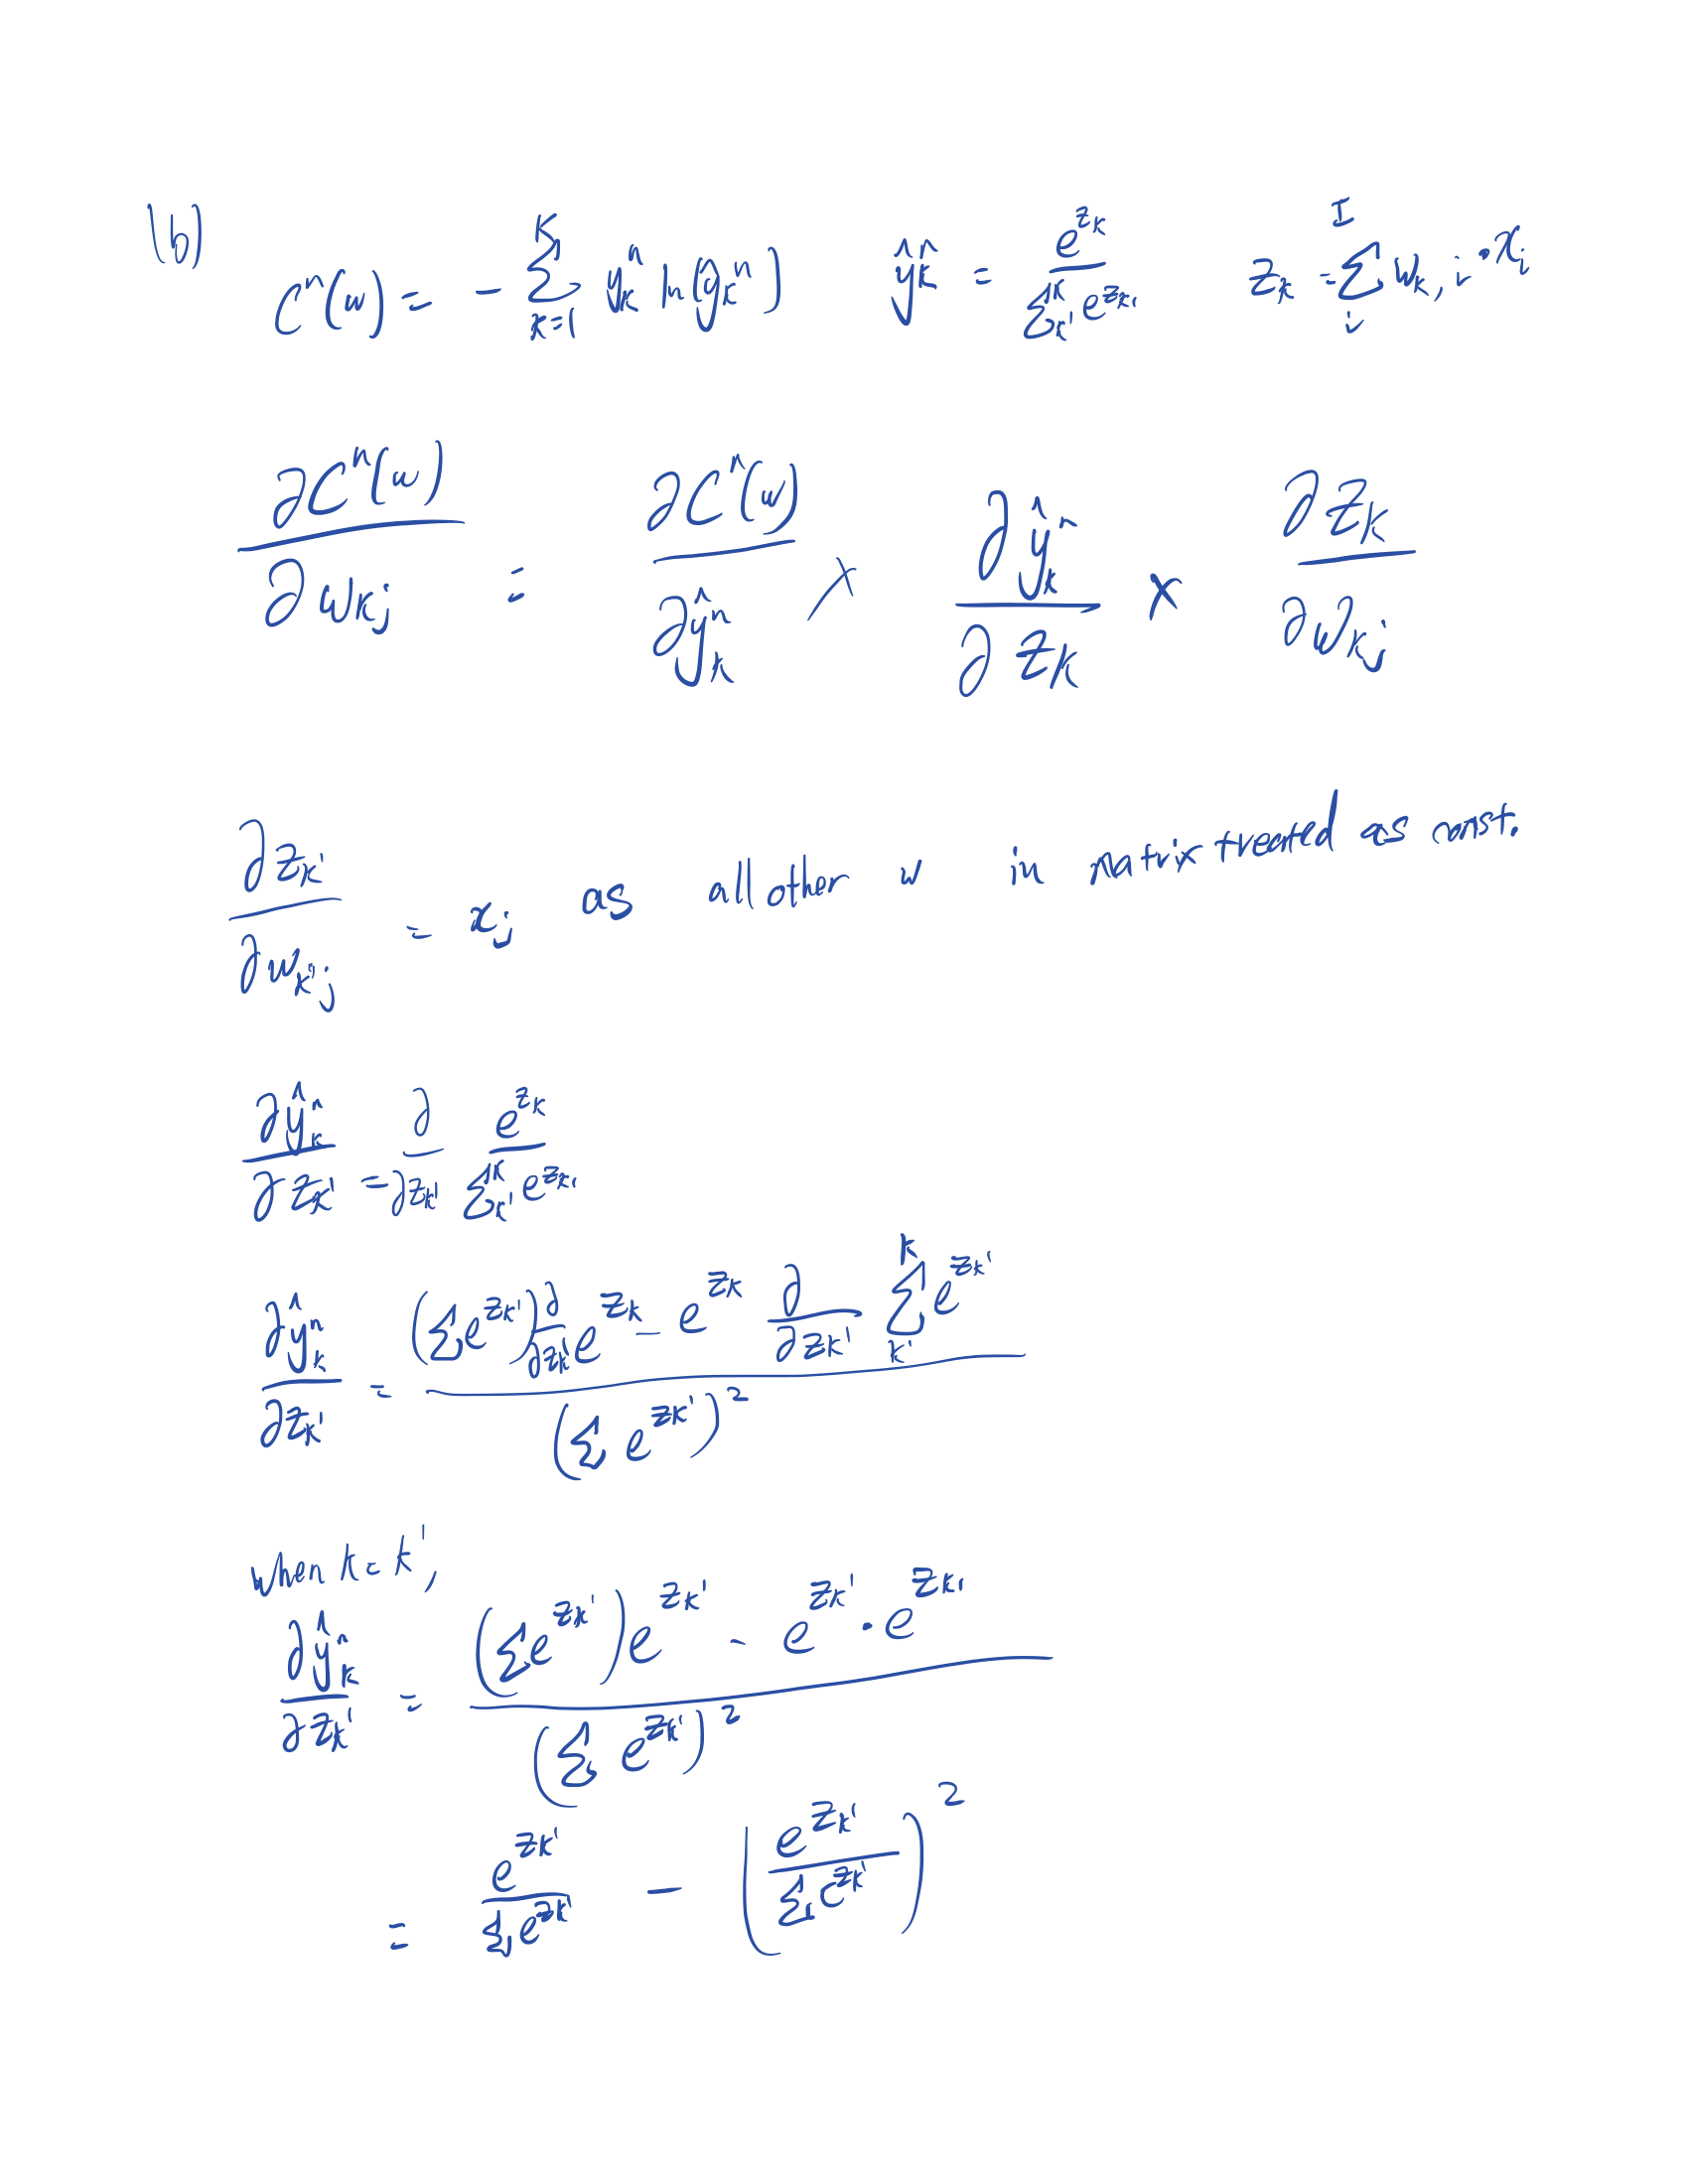 (b) C^n(w) = - ∑_{k=1}^{K} y_k^n ln(ŷ_k^n)   ŷ_k^n = e^{z_k} / ∑_{k'}^{K} e^{z_{k'}}   z_k = ∑_i^I w_{k,i} · x_i
∂C^n(w)/∂w_{kj} = ∂C^n(w)/∂ŷ_k^n × ∂ŷ_k^n/∂z_k × ∂z_k/∂w_{kj}
∂z_{k'}/∂w_{k'j} = x_j as all other w in matrix treated as const.
∂ŷ_k^n/∂z_{k'} = ∂/∂z_{k'} e^{z_k} / ∑_{k'}^{K} e^{z_{k'}}
∂ŷ_k^n/∂z_{k'} = ((∑ e^{z_{k'}}) ∂/∂z_{k'} e^{z_k} - e^{z_k} ∂/∂z_{k'} ∑_{k'}^{K} e^{z_{k'}}) / (∑ e^{z_{k'}})^2
when k = k',
∂ŷ_k^n/∂z_{k'} = ((∑ e^{z_{k'}}) e^{z_{k'}} - e^{z_{k'}} · e^{z_{k'}}) / (∑ e^{z_{k'}})^2
= e^{z_{k'}} / ∑ e^{z_{k'}} - (e^{z_{k'}} / ∑ e^{z_{k'}})^2